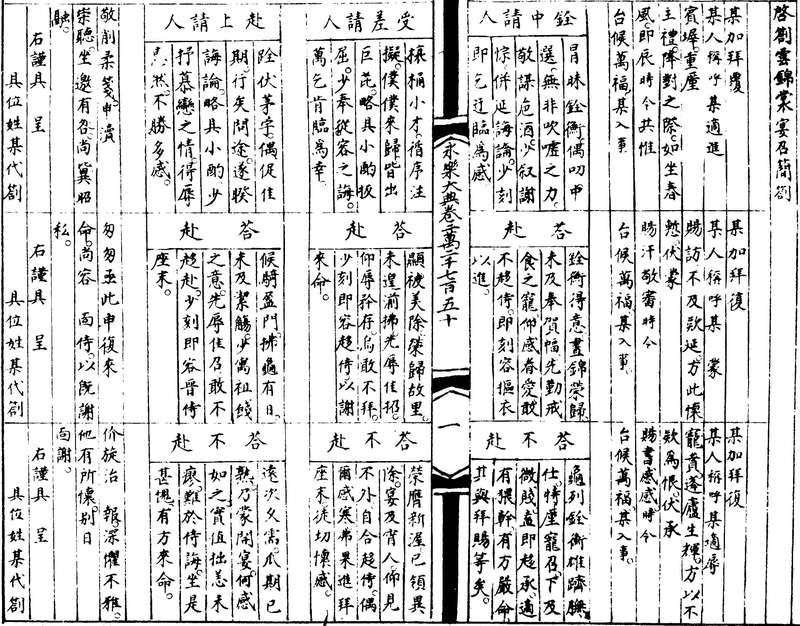 啓劄雲錦裳宴召簡劄
某加拜覆
某人稱呼某適進
賓墀重塵
主禮降對之際如坐春
風即辰時令共惟
台候萬福某入事
銓中請人
冒昧銓衡偶叨中
選無非吹噓之力
敬謀危酒少叙謝
悰併延誨論少刻
即乞迂臨爲感
永樂大典卷二萬二千七百五十
一
受差請人
榱桶小才循序注
擬僕僕來歸皆出
巨芘略具小酌扳
屈少奉從容之誨
萬乞肯臨爲幸
赴上請人
伏茅孚偶促佳
期行矣問途遂睽
誨論略具小酌少
抒慕戀之情得辱
惠然不勝多感
敬削柔箋申瀆
崇聽坐邀有召尚冀昭
融
右謹具 呈
具位姓某代劄
某加拜復
某人稱呼某 蒙
賜訪不及款延方此懷
慙伏蒙
賜汗敬審時令
台候萬福某入事
答 赴
銓衡得意晝錦榮歸
未及奉賀幅先勤戒
食之寵仰感眷愛敢
不趨侍即刻容摳衣
以進
答 赴
顯被美除榮歸故里
未遑前拂先辱佳招
仰辱矜存烏敢不拜
少刻即容趨侍以謝
來命
答 赴
候騎盈門拂龜有日
未及潔觴少寓祖餞
之意先辱佳召敢不
趨赴少刻即容晉侍
座末
匆匆亟此申復來
命尚容 面侍以既謝
私
右謹具 呈
具位姓某代劄
某加拜復
某人稱呼某適辱
寵賁蓬廬生輝方以不
欵爲恨伏承
賜書感感時令
台候萬福某入事
答不赴
龜列銓衡雄躋膴
仕特塵寵召下及
微賤盍即趨承適
有猥幹有方嚴命
其與拜賜等矣
答不赴
榮膺新渥已領異
除宴及宵人仰見
不外自合趨侍偶
爾感寒弗果進拜
座末徒切懷感
答不赴
遠次久需瓜期已
熟乃蒙開宴何感
如之實値拙恙未
瘳難於侍誨坐是
甚愧有方來命
价旋治 報深懼不雅
他有所懷别日
面謝
右謹具 呈
具位姓某代劄